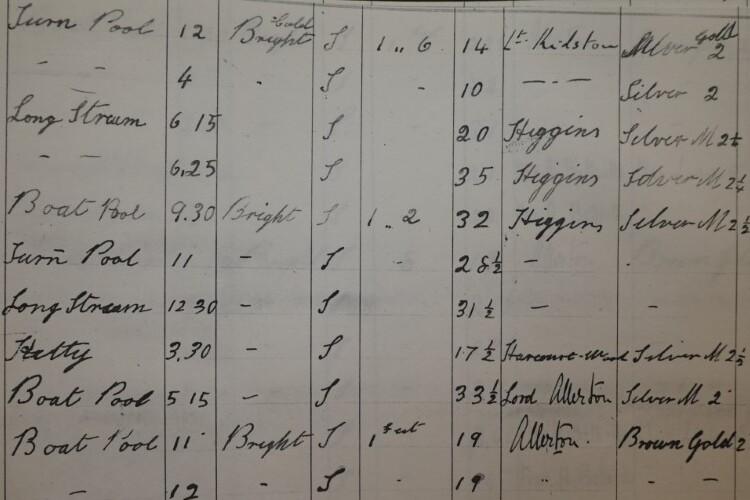 Turn Pool 12 Cold Bright S 1 .. 6 14 Lt. Kidston Silver Gold 2
- - 4 " S - 10 - - - Silver 2
Long Stream 6 15 S 20 Higgins Silver M 2¼
- - 6.25 S 35 Higgins Silver M 2¼
Boat Pool 9.30 Bright S 1 .. 2 32 Higgins Silver M 2½
Turn Pool 11 - S 28½ - "
Long Stream 12 30 - S 31½ - -
Hetty 3.30 - S 17½ Harcourt-Wood Silver M 2½
Boat Pool 5 15 - S 33½ Lord Allerton Silver M 2
Boat Pool 11 Bright S 1 19 Allerton. Brown Gold 2
- 12 - S 19 " - -